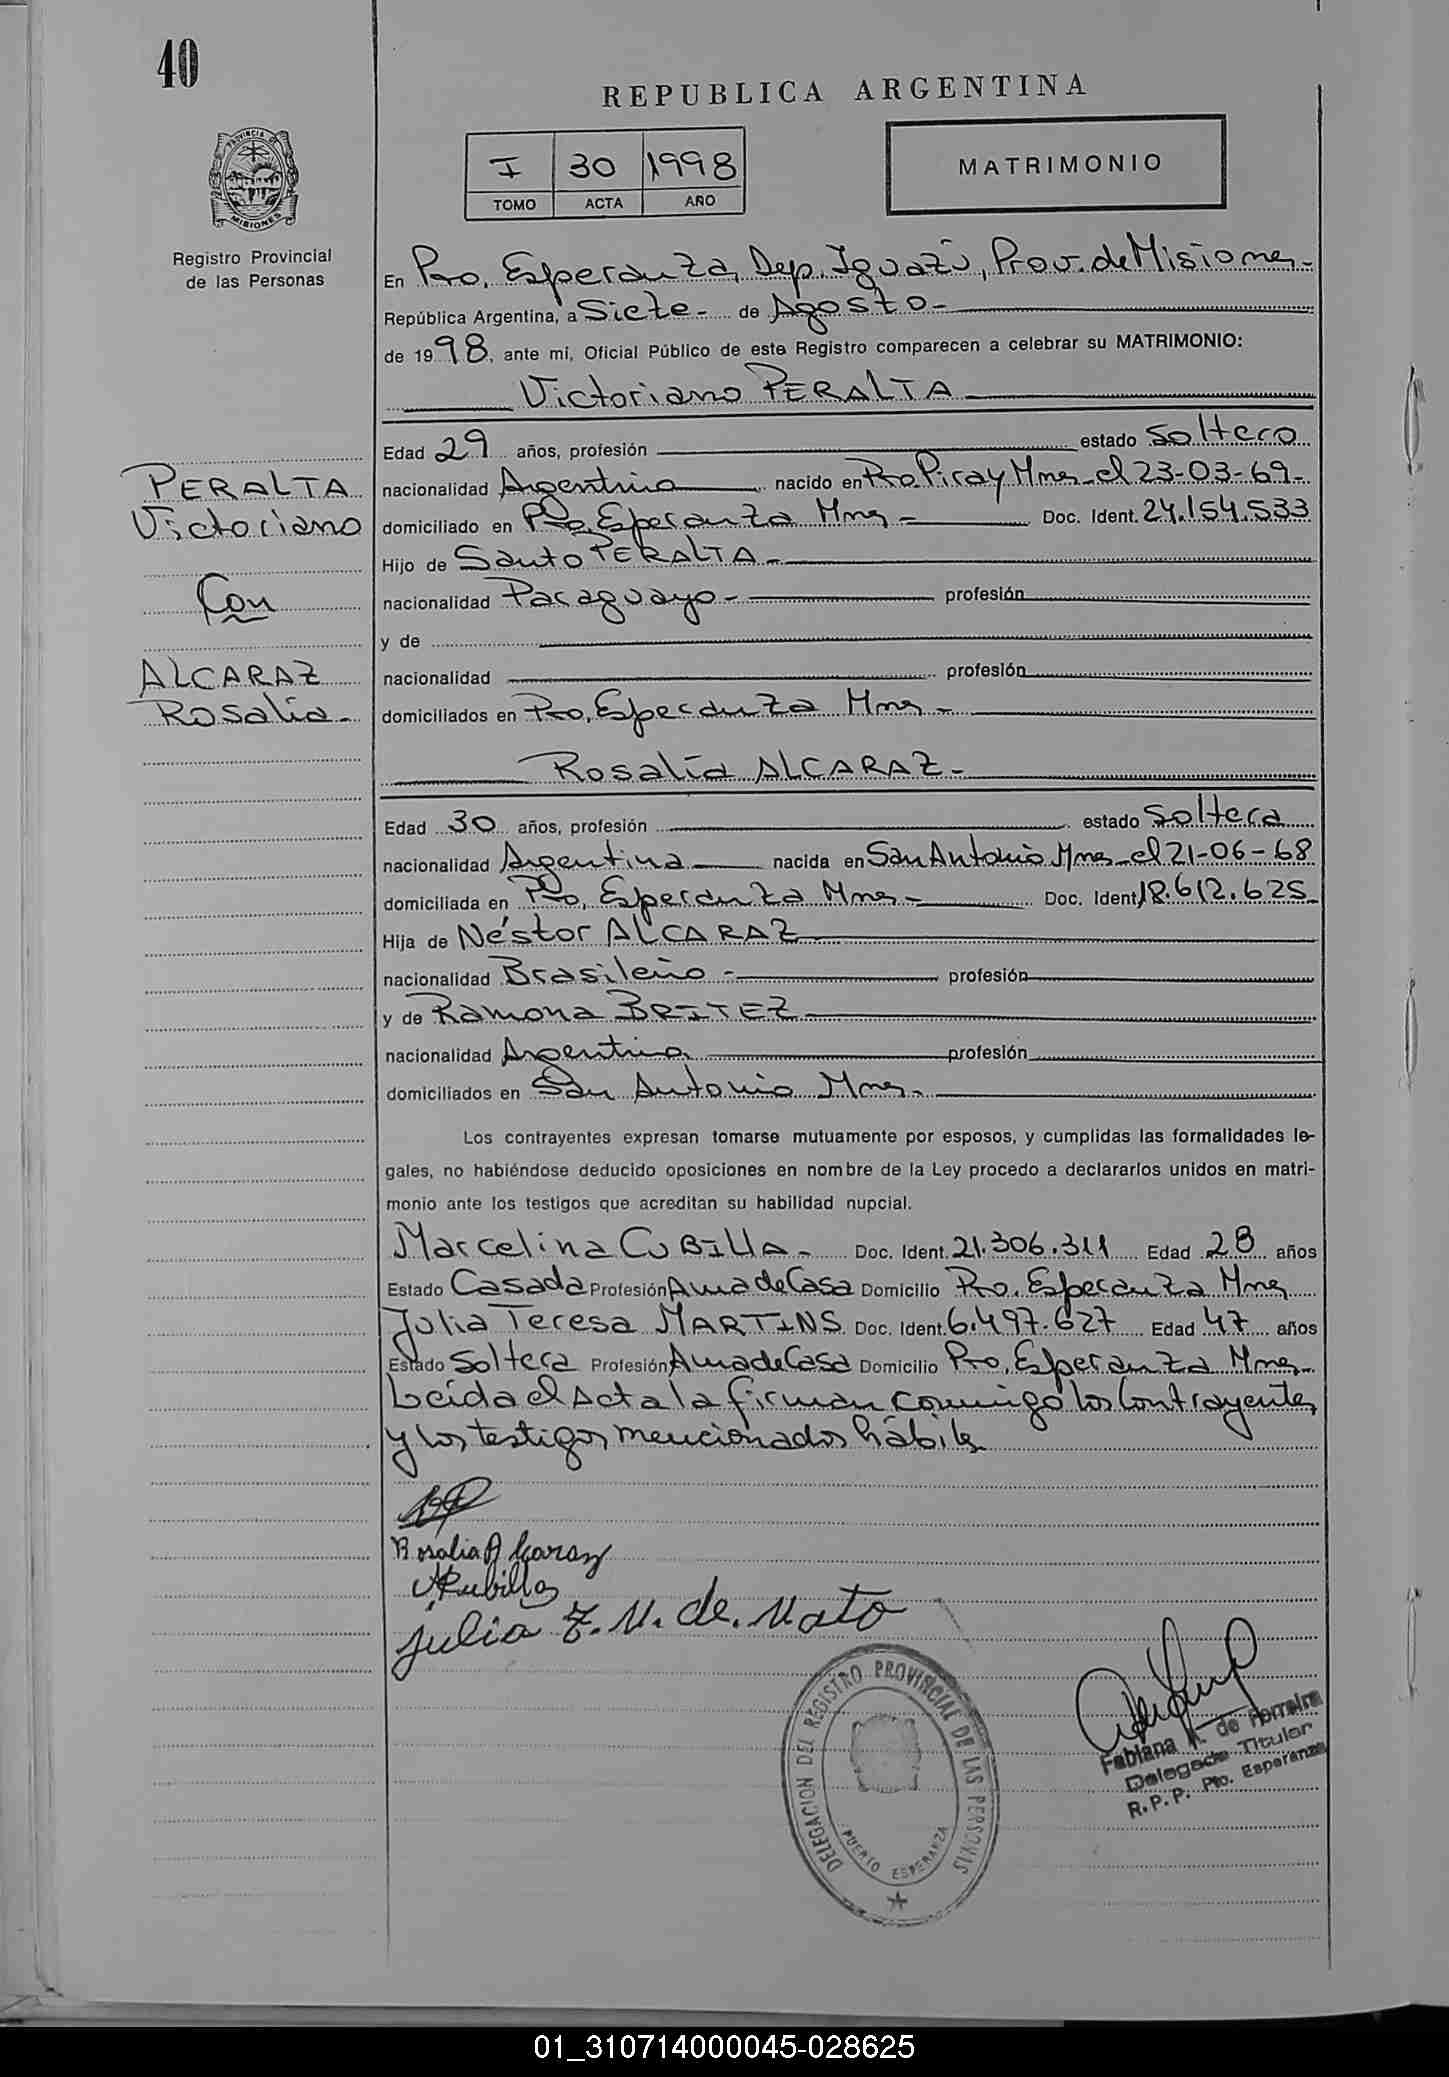 40
REPUBLICA ARGENTINA
PROVINCIA DE
MISIONES
Registro Provincial
de las Personas
I 30 1998
TOMO ACTA AÑO
MATRIMONIO
En Pto. Esperanza, Dep. Iguazú, Prov. de Misiones-
República Argentina, a Siete- de Agosto-
de 1998, ante mi, Oficial Público de este Registro comparecen a celebrar su MATRIMONIO:
Victoriano PERALTA
Edad 29 años, profesión estado Soltero
nacionalidad Argentina nacido en Pto. Piray Mnes- el 23-03-69-
domiciliado en Pto. Esperanza Mnes- Doc. Ident. 24.154.533
Hijo de Santo PERALTA-
nacionalidad Paraguayo- profesión
y de
nacionalidad profesión
domiciliados en Pto. Esperanza Mnes-
PERALTA
Victoriano
Con
ALCARAZ
Rosalía-
Rosalía ALCARAZ-
Edad 30 años, profesión estado Soltera
nacionalidad Argentina nacida en San Antonio Mnes- el 21-06-68
domiciliada en Pto. Esperanza Mnes- Doc. Ident. 18.612.625
Hija de Néstor ALCARAZ
nacionalidad Brasileño- profesión
y de Ramona BRITEZ
nacionalidad Argentina profesión
domiciliados en San Antonio Mnes-
Los contrayentes expresan tomarse mutuamente por esposos, y cumplidas las formalidades le-
gales, no habiéndose deducido oposiciones en nombre de la Ley procedo a declararlos unidos en matri-
monio ante los testigos que acreditan su habilidad nupcial.
Marcelina CUBILLA- Doc. Ident. 21.306.311 Edad 28 años
Estado Casada Profesión Ama de Casa Domicilio Pto. Esperanza Mnes
Julia Teresa MARTINS Doc. Ident. 6.497.627 Edad 47 años
Estado Soltera Profesión Ama de Casa Domicilio Pto. Esperanza Mnes-
Leida el Acta la firman conmigo los Contrayentes
y los testigos mencionados hábiles
Rosalia Alcaraz
Cubilla
julia T. M. de. Mato
DELEGACION DEL REGISTRO PROVINCIAL DE LAS PERSONAS
PUERTO ESPERANZA
Fabiana de Ferreira
Delegada Titular
R.P.P. Pto. Esperanza
01_310714000045-028625